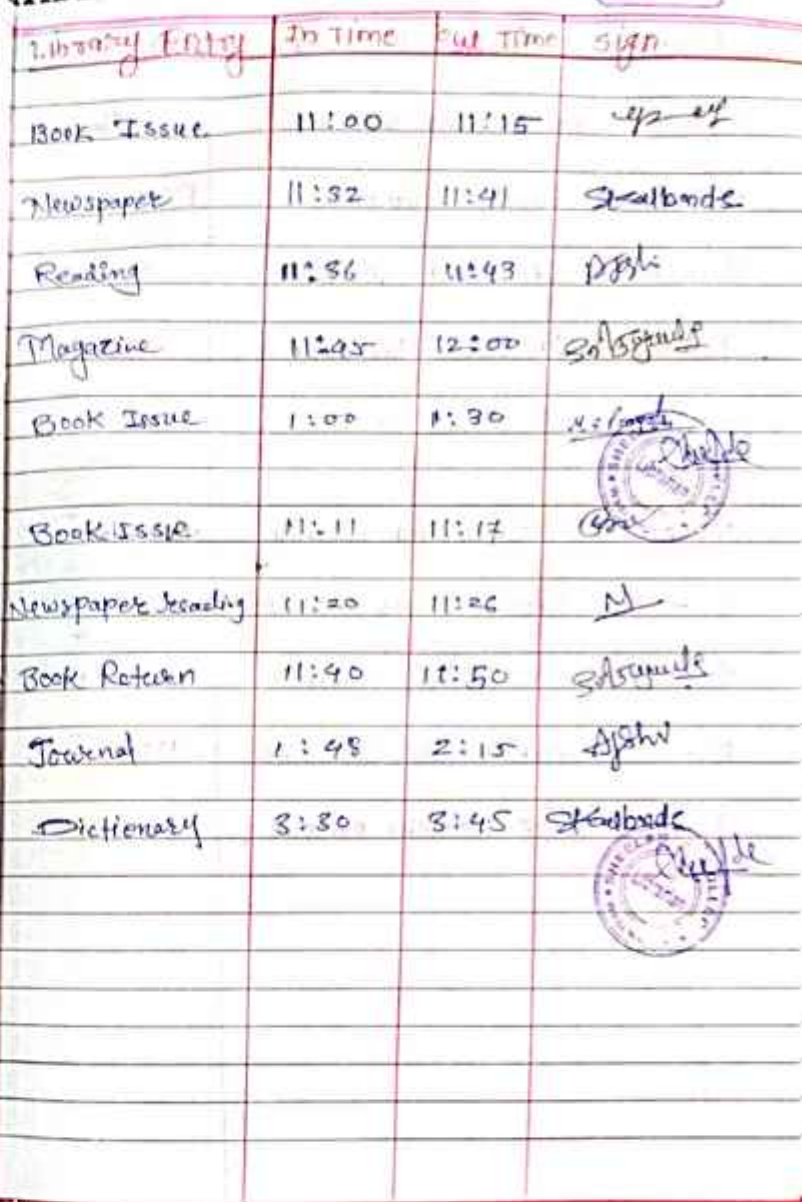 Library Entry In Time Out Time Sign
Book Issue 11:00 11:15
Newspaper 11:32 11:41
Reading 11:36 11:43
Magazine 11:45 12:00
Book Issue 1:00 1:30
Book Issue 11:11 11:17
Newspaper reading 11:20 11:26
Book Return 11:40 11:50
Journal 1:48 2:15
Dictionary 3:30 3:45